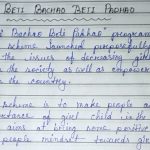 BETI BACHAO BETI PADHAO
Bachao Beti Padhao' program
scheme launched purposefully
the issues of decreasing girls
the society as well as empower
the country.
scheme is to make people a
rtance of girl child in the
aims at bring some positive
people mindset towards gir